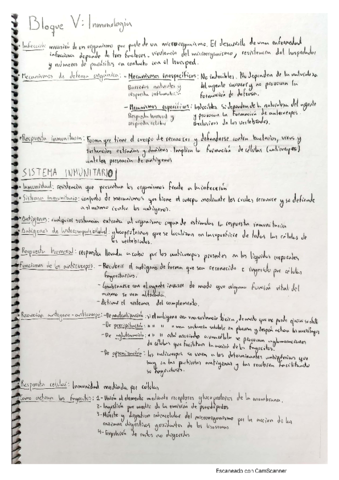 Bloque V: Inmunología
-Infección: invasión de un organismo por parte de un microorganismo. El desarrollo de una enfermedad
infecciosa depende de tres factores: virulencia del microorganismo, resistencia del hospedador
y número de parásitos en contacto con el huésped.
-Mecanismos de defensa orgánica: -Mecanismos inespecíficos: No inducibles. No dependen de la naturaleza
Barreras naturales y del agente agresor y no provocan la
respuesta inflamatoria formación de defensas.
-Mecanismos específicos: Inducibles si dependen de la naturaleza del agente
Respuesta humoral y y provocan la formación de
respuesta celular exclusivos de los vertebrados.
-Respuesta inmunitaria: Forma que tiene el cuerpo de reconocer y defenderse contra bacterias, virus y
sustancias extrañas y dañinas. Implica la formación de células (anticuerpos)
ante la presencia de antígenos
SISTEMA INMUNITARIO
-Inmunidad: resistencia que presentan los organismos frente a la infección
-Sistema inmunitario: conjunto de mecanismos que tiene el cuerpo mediante los cuales reconoce y se defiende
a sí mismo contra los antígenos.
-Antígenos: cualquier sustancia extraña al organismo capaz de estimular la respuesta inmunitaria
-Antígenos de histocompatibilidad: glucoproteínas que se localizan en la superficie de todas las células de
los vertebrados.
-Respuesta humoral: respuesta llevada a cabo por los anticuerpos presentes en los líquidos corporales
-Funciones de los anticuerpos: - Recubrir el antígeno de forma que sea reconocido e ingerido por células
fagocitarias.
- Combinarse con el agente invasor de modo que alguna función vital del
mismo se vea alterada.
- Activar el sistema del complemento.
-Reacción antígeno-anticuerpo: - De neutralización:
- De precipitación:
- De aglutinación:
de células que facilitan la acción de los fagocitos.
- De opsonización: los anticuerpos se unen a los determinantes antigénicos que
hay en las partículas antigénicas y las recubren facilitando
su fagocitosis.
-Respuesta celular: Inmunidad mediada por células
-Cómo actúan los fagocitos: 1- Unión al elemento mediante receptores glucoproteicos de la membrana.
2- Ingestión por medio de la emisión de pseudópodos
3- Muerte y digestión intracelular del microorganismo por la acción de las
enzimas digestivas procedentes de los lisosomas
4- Expulsión de restos no digeridos
Escaneado con CamScanner